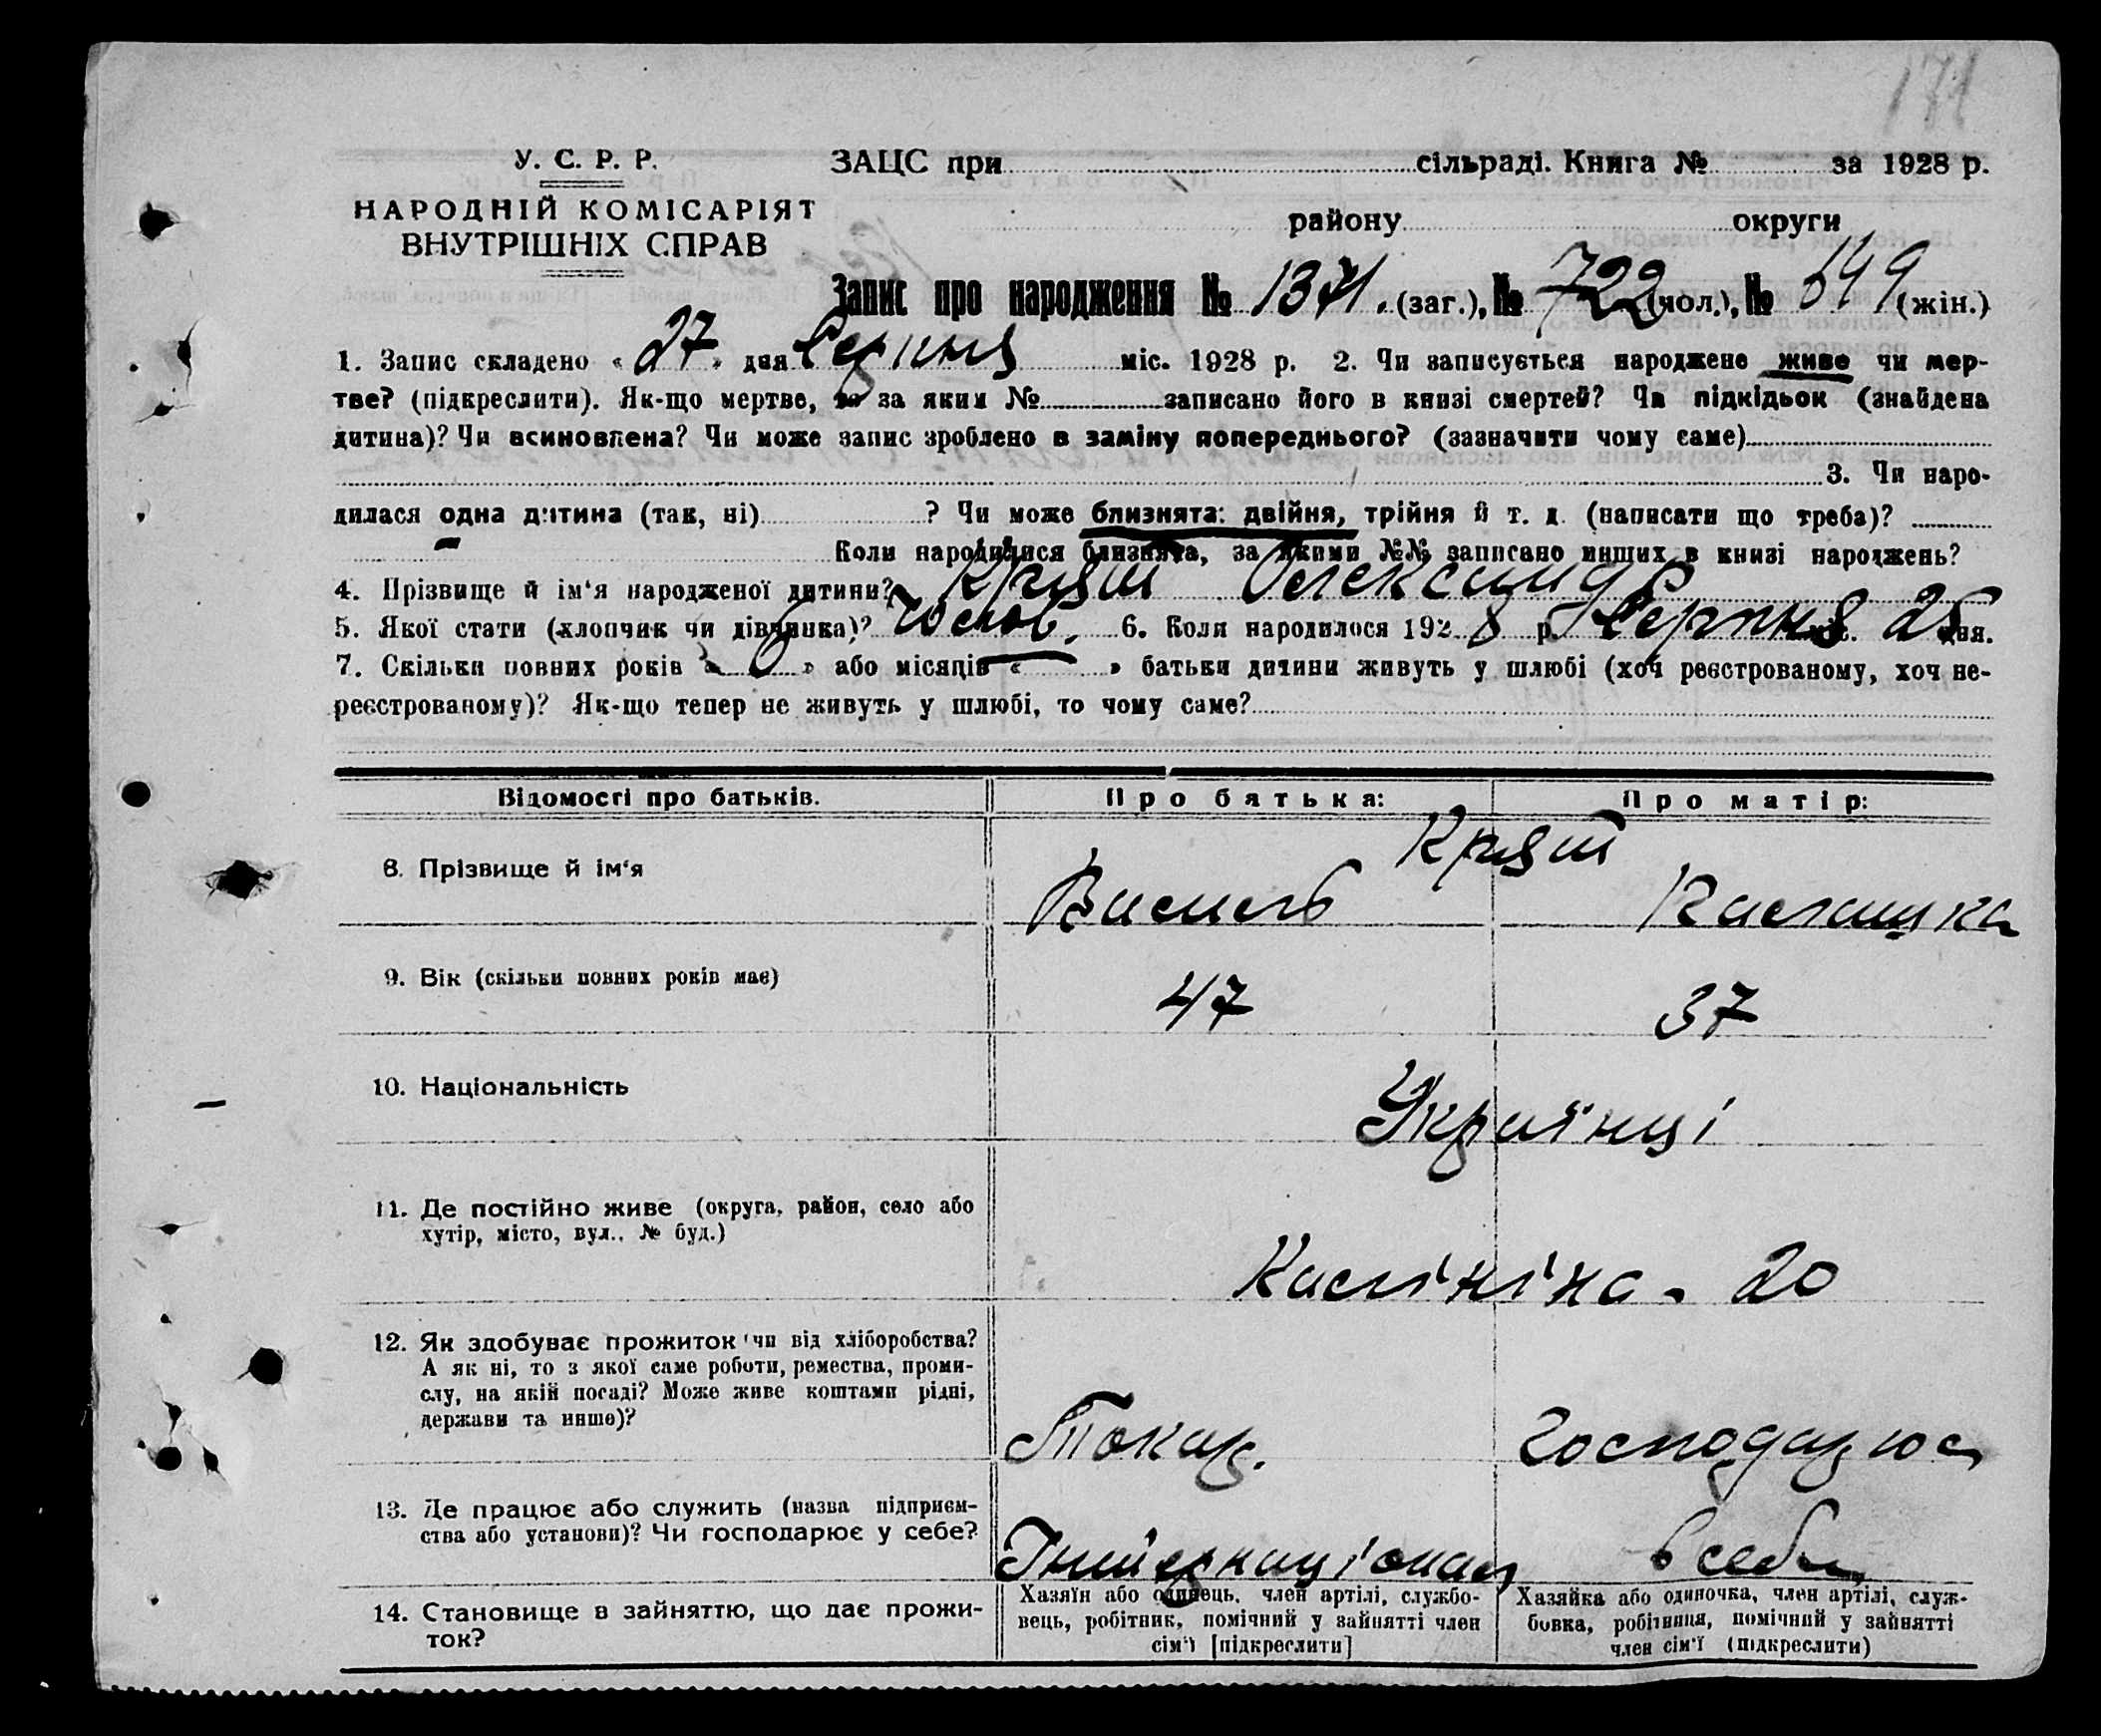 171
У. С. Р. Р.
НАРОДНІЙ КОМІСАРІЯТ
ВНУТРІШНІХ СПРАВ
ЗАЦС при сільраді. Книга № за 1928 р.
району округи
Запис про народження № 1371. (заг.), № 722 (чол.), № 649 (жін.)
1. Запис складено « 27 » дня Серпня міс. 1928 р. 2. Чи записується народжене живе чи мер-
тве? (підкреслити). Як-що мертве, то за яким № записано його в книзі смертей? Чи підкідьок (знайдена
дитина)? Чи всиновлена? Чи може запис зроблено в заміну попереднього? (зазначити чому саме)
3. Чи наро-
дилася одна дитина (так, ні) ? Чи може близнята: двійня, трійня й т. д. (написати що треба)?
Коли народилися близнята, за якими №№ записано инших в книзі народжень?
4. Прізвище й ім‘я народженої дитини? Крят Олександр
5. Якої стати (хлопчик чи дівчинка)? Чолов. 6. Коли народилося 192 8 р. Серпня міс. 25 дня.
7. Скільки повних років « » або місяців « » батьки дитини живуть у шлюбі (хоч реєстрованому, хоч не-
реєстрованому)? Як-що тепер не живуть у шлюбі, то чому саме?
Відомості про батьків. Про батька: Про матір:
8. Прізвище й ім‘я
Крят
Василь
9. Вік (скільки повних років має) 47 37
10. Національність
Українці
11. Де постійно живе (округа, район, село або
хутір, місто, вул., № буд.)
Калініна - 20
12. Як здобуває прожиток чи від хліборобства?
А як ні, то з якої саме роботи, ремества, проми-
слу, на якій посаді? Може живе коштами рідні,
держави та инше)?
Токар. Господарює
13. Де працює або служить (назва підприєм-
ства або установи)? Чи господарює у себе?
Інтернаціонал в себе
14. Становище в зайняттю, що дає прожи-
ток?
Хазяїн або одинець, член артілі, службо-
вець, робітник, помічний у зайнятті член
сім‘ї [підкреслити]
Хазяйка або одиночка, член артілі, служ-
бовка, робітниця, помічний у зайнятті
член сім‘ї (підкреслити)